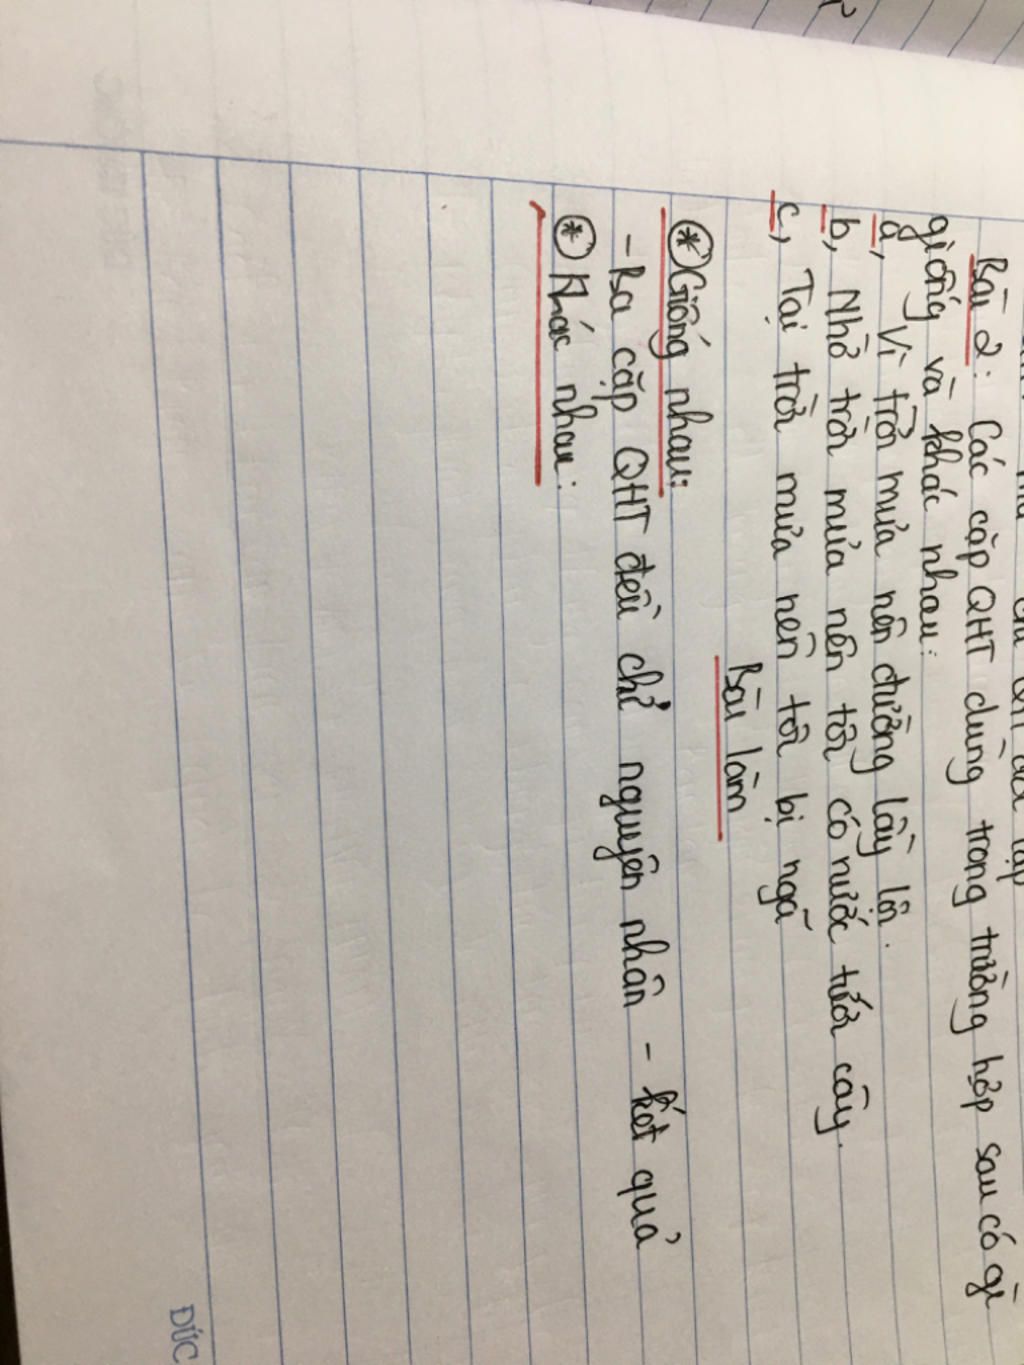 Bài 2: Các cặp QHT dùng trong trường hợp sau có gì
giống và khác nhau:
a, Vì trời mưa nên đường lầy lội.
b, Nhờ trời mưa nên tôi có nước tưới cây.
c, Tại trời mưa nên tôi bị ngã
Bài làm
* Giống nhau:
- Ba cặp QHT đều chỉ nguyên nhân - kết quả
* Khác nhau:
ĐỨC